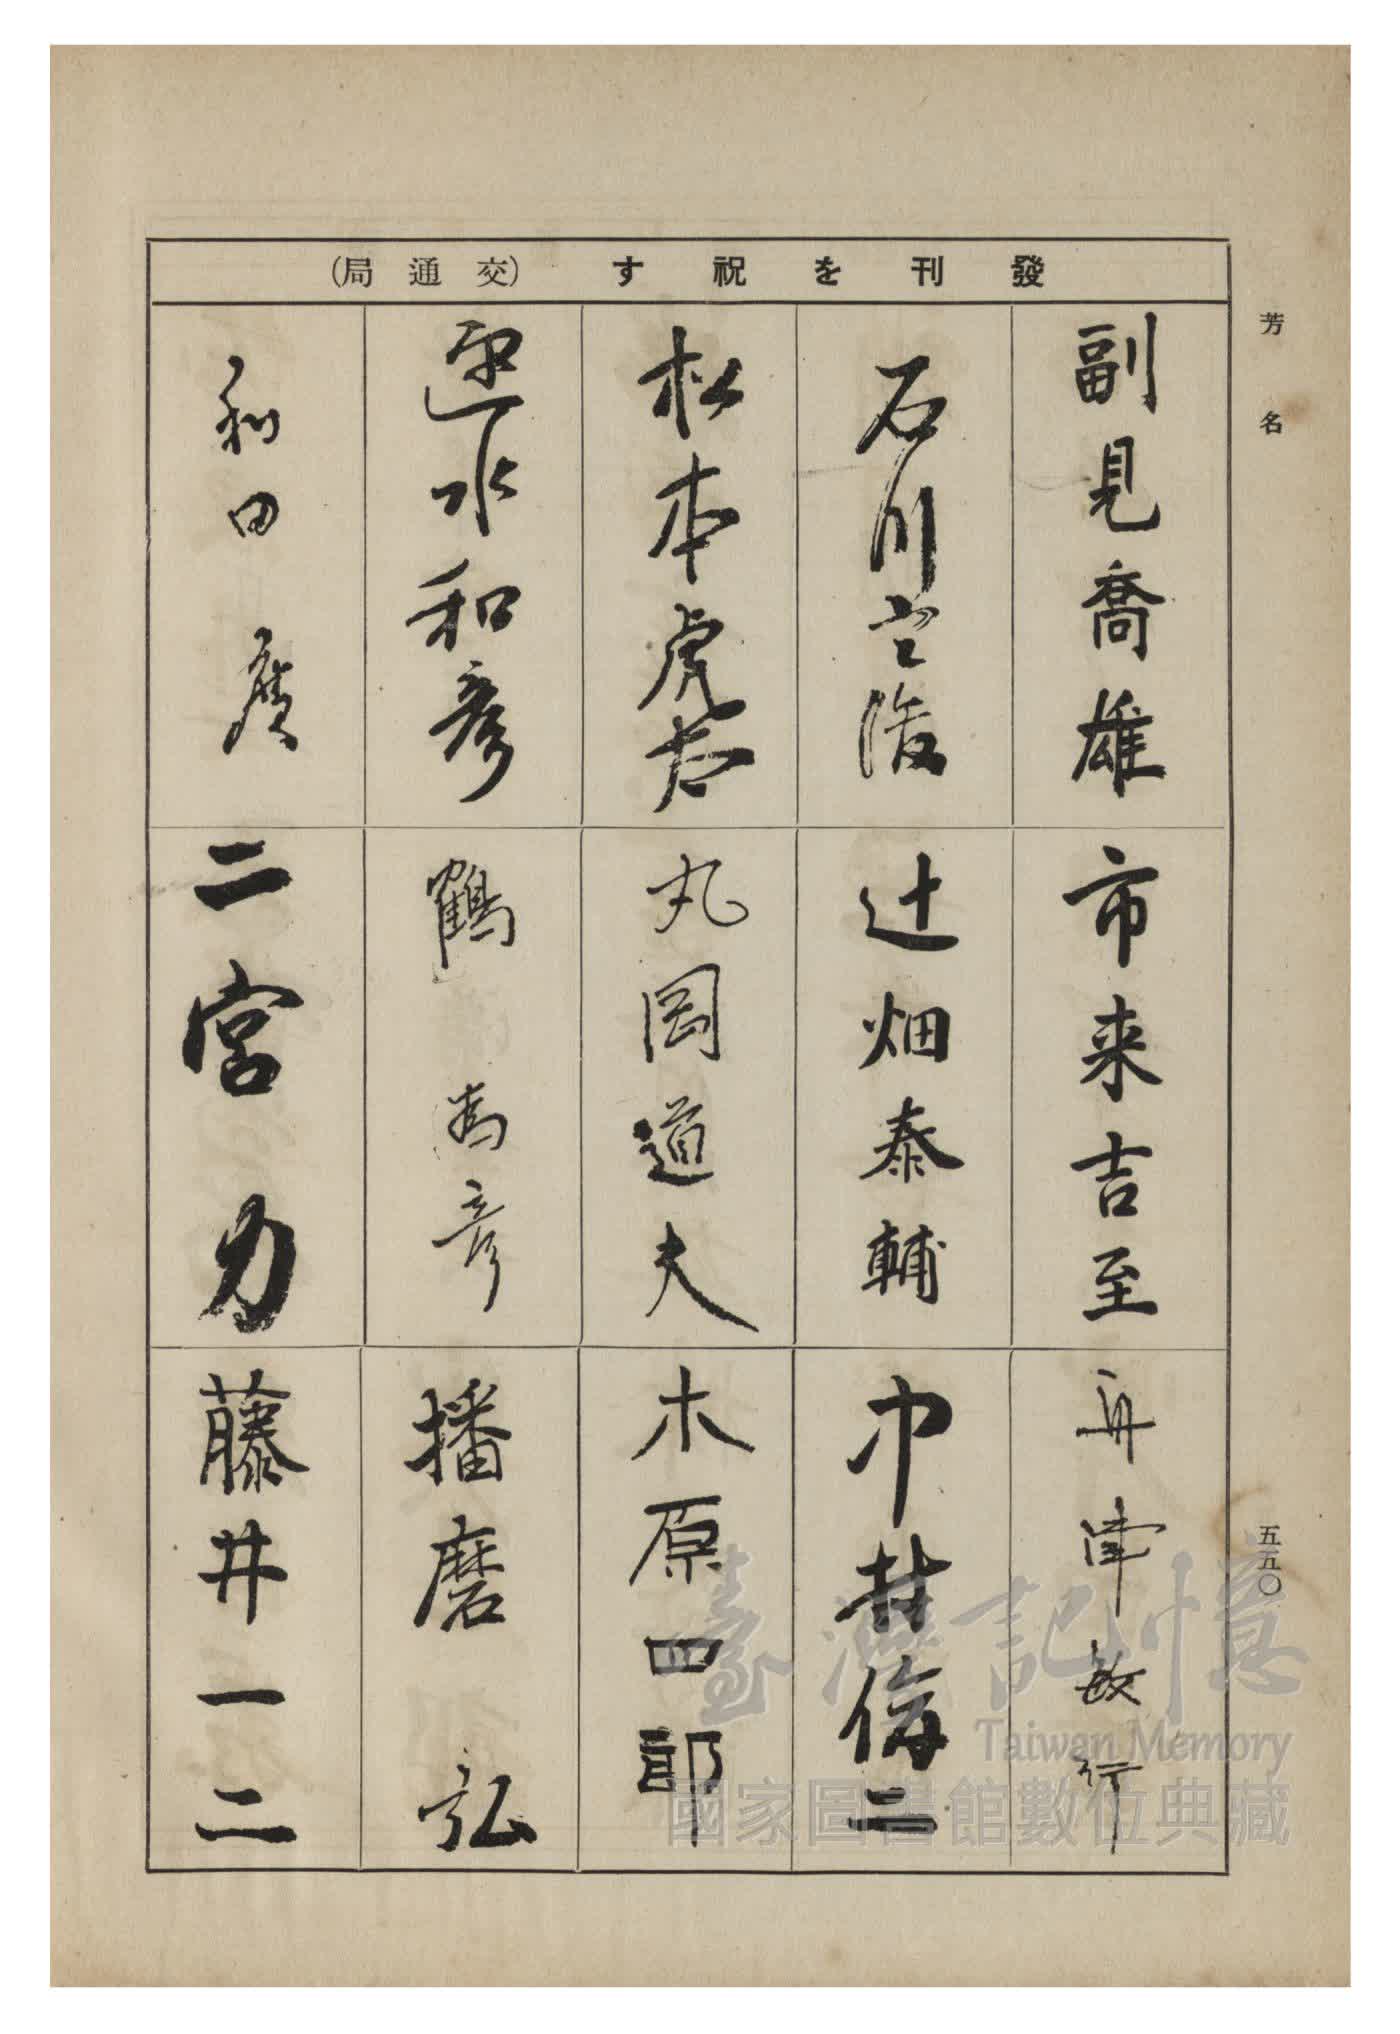 芳名
五五〇
發刊を祝す (交通局)
副見喬雄
石川定俊
松本虎太
速水和彦
和田廣
市来吉至
辻畑泰輔
丸岡道夫
鶴 彦
二宮力
行
二
木原四郎
播磨弘
藤井一二
臺灣記憶
Taiwan Memory
國家圖書館數位典藏